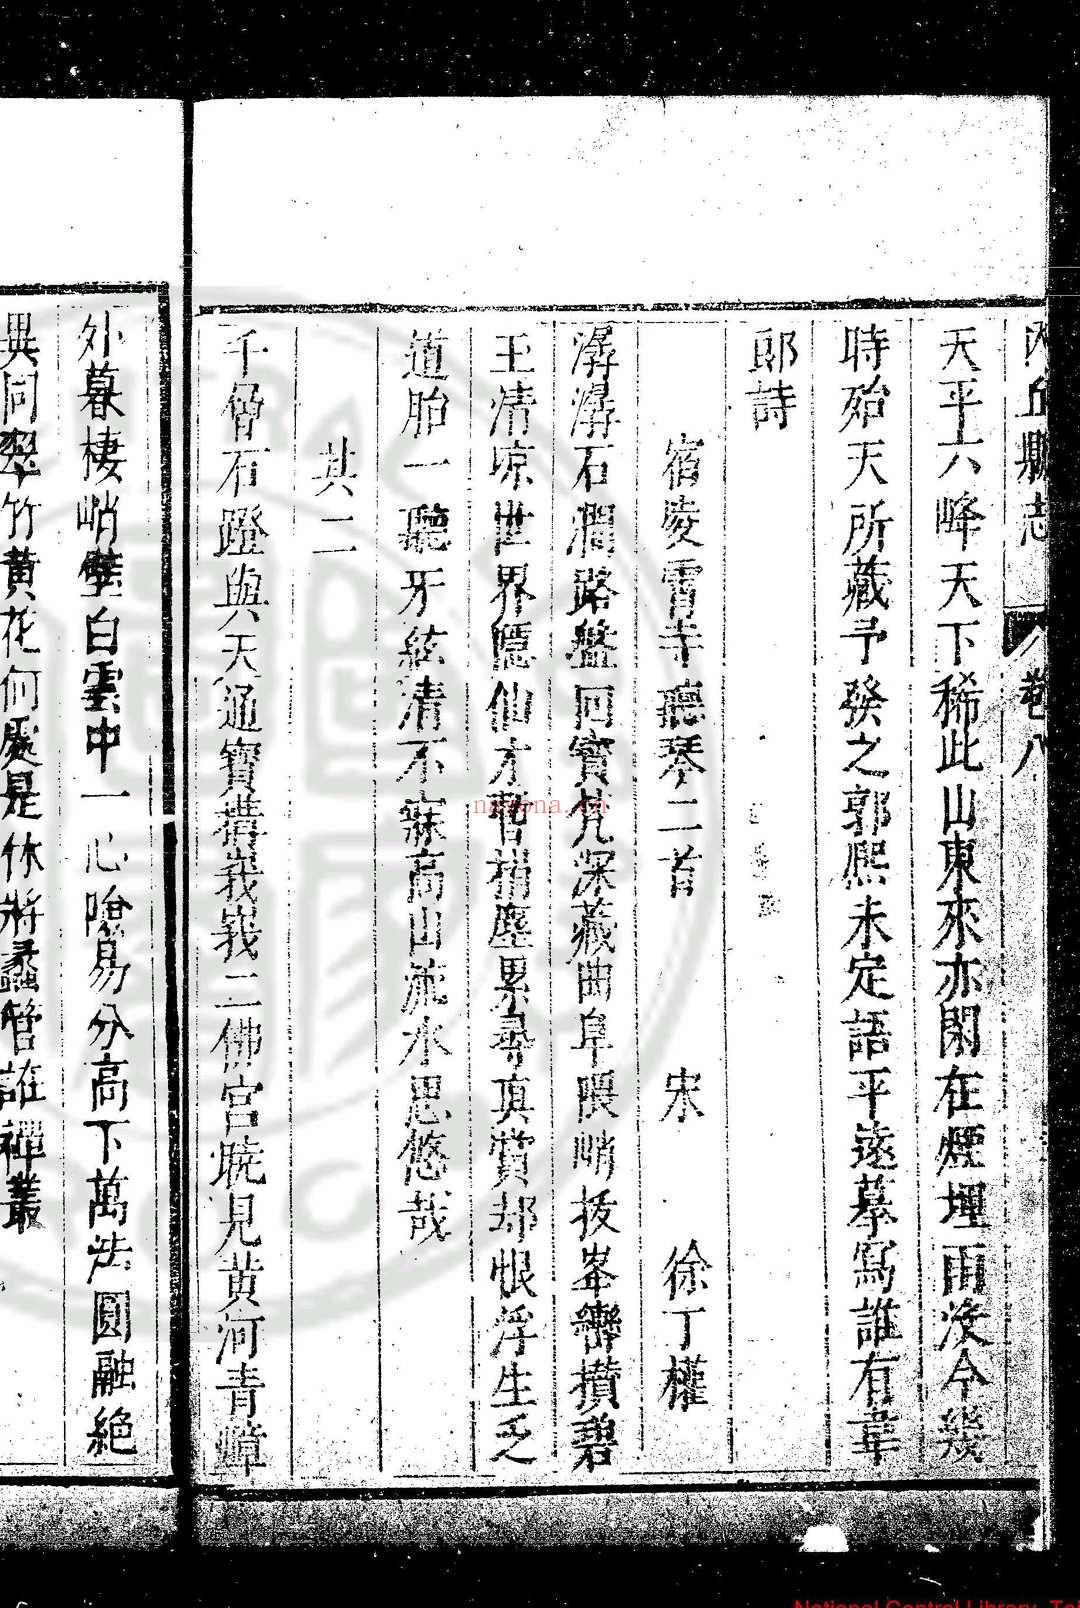 內丘縣志 卷八
天平六峰天下稀此山東來亦閑在煙埋雨沒今幾
時殆天所藏予發之郭熙未定語平遠摹寫誰有韋
郎詩
宿凌霄寺聽琴二首 宋 徐丁權
潺潺石澗路盤回寳梵深藏曲阜隈峭拔峯巒攅碧
玉清凉世界隱仙才暫捐塵累尋真賞却恨浮生乏
道胎一聽牙絃清不寐高山流水思悠哉
其二
千僧石蹬與天通寳搆峩峩二佛宮曉見黄河青嶂
外暮棲峭壁白雲中一心喻易分高下萬法圓融絶
異同翠竹黄花何處是休將蠡管誑禪叢
nayona.cn
National Central Library,